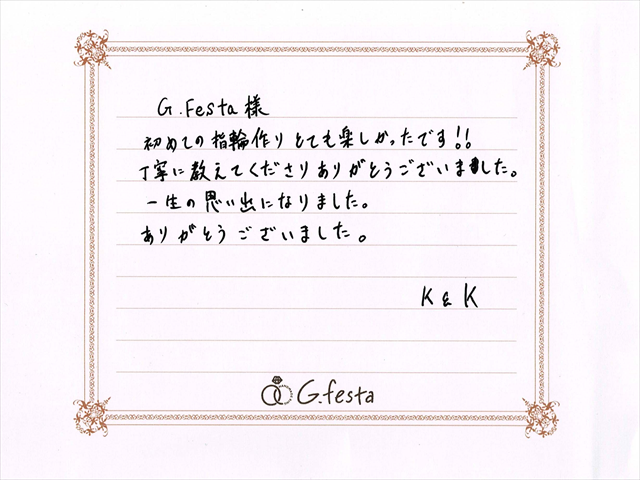 G.Festa様
初めての指輪作りとても楽しかったです!!
丁寧に教えてくださりありがとうございました。
一生の思い出になりました。
ありがとうございました。
K & K
G.festa